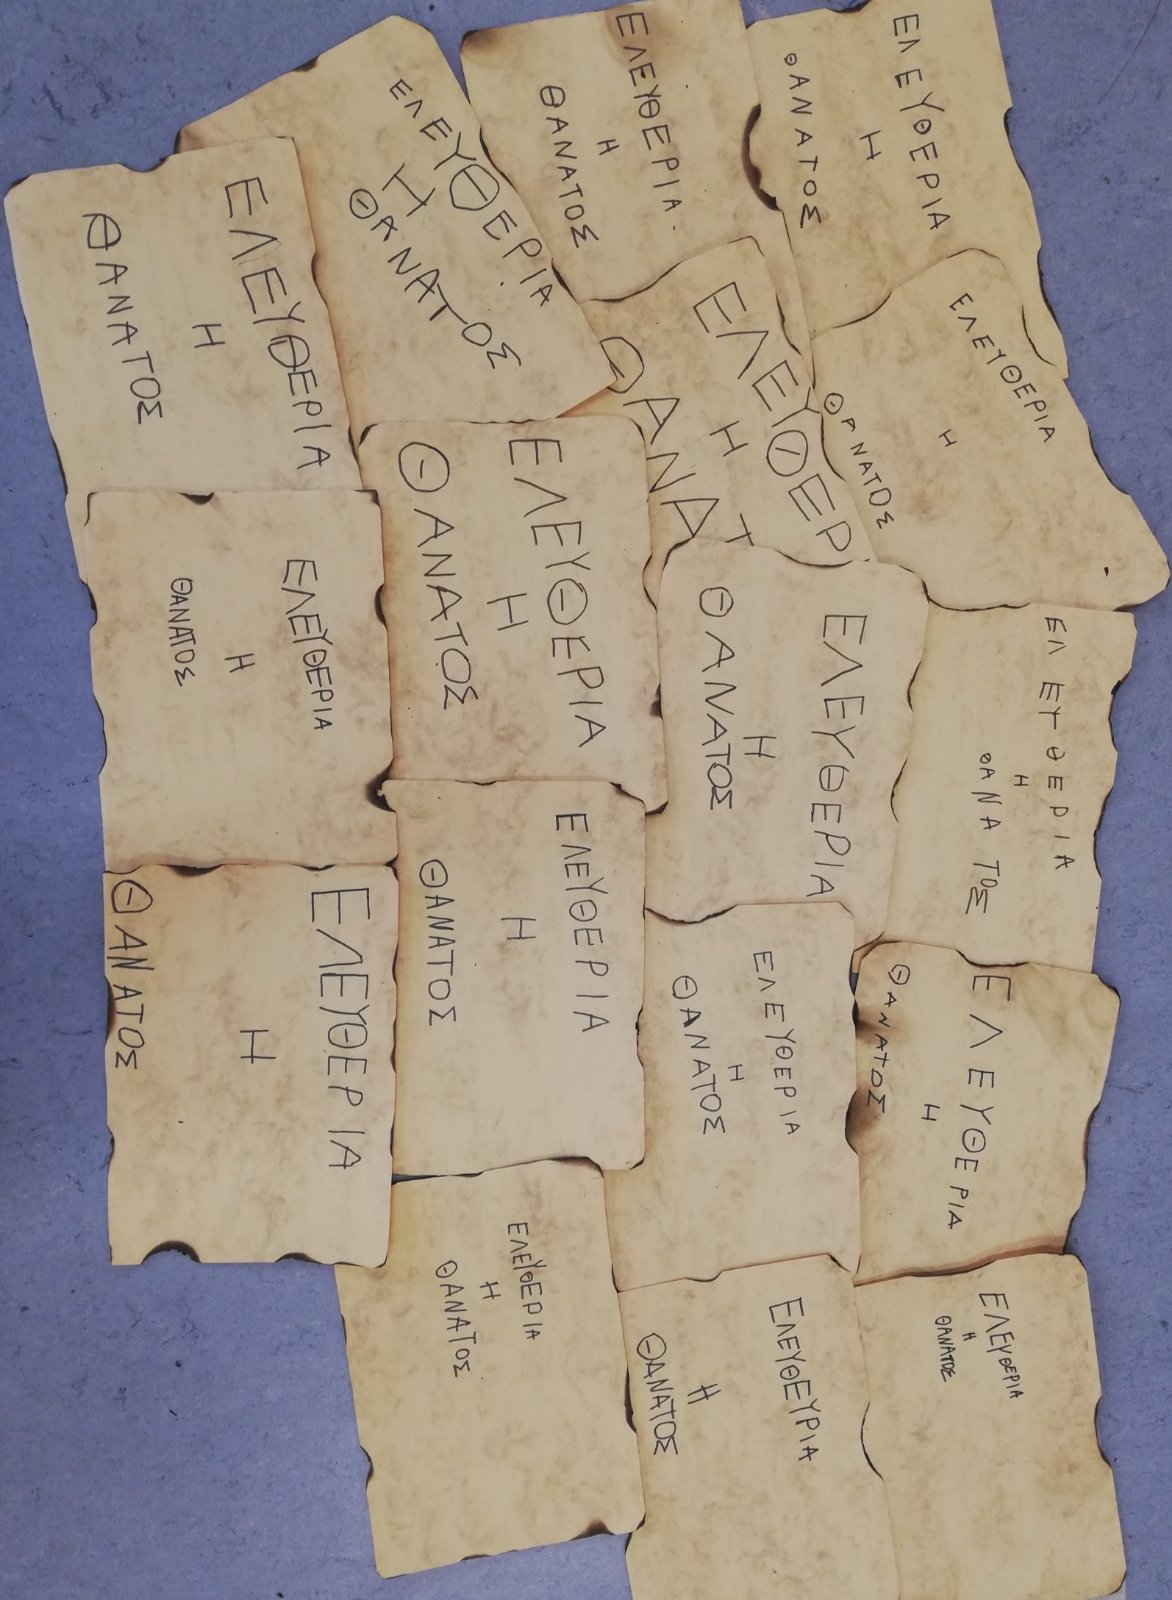 ΕΛΕΥΘΕΡΙΑ
Η
ΘΑΝΑΤΟΣ
ΕΛΕΥΘΕΡΙΑ
Η
ΘΑΝΑΤΟΣ
ΕΛΕΥΘΕΡΙΑ
Η
ΘΑΝΑΤΟΣ
ΕΛΕΥΘΕΡΙΑ
Η
ΘΑΝΑΤΟΣ
ΕΛΕΥΘΕΡΙΑ
Η
ΘΑΝΑΤΟΣ
ΕΛΕΥΘΕΡΙΑ
Η
ΘΑΝΑΤΟΣ
ΕΛΕΥΘΕΡΙ
Η
ΘΑΝΑΤ
ΕΛΕΥΘΕΡΙΑ
Η
ΘΑΝΑΤΟΣ
ΕΛΕΥΘΕΡΙΑ
Η
ΘΑΝΑΤΟΣ
ΕΛΕΥΘΕΥΡΙΑ
Η
ΘΑΝΑΤΟΣ
ΕΛΕΥΘΕΡΙΑ
Η
ΘΑΝΑΤΟΣ
ΕΛΕΥΘΕΡΙΑ
Η
ΘΑΝΑΤΟΣ
ΕΛΕΥΘΕΡΙΑ
Η
ΘΑΝΑΤΟΣ
ΕΛΕΥΘΕΡΙΑ
Η
ΘΑΝΑΤΟΣ
ΕΛΕΥΘΕΡΙΑ
Η
ΘΑΝΑΤΟΣ
ΕΛΕΥΘΕΡΙΑ
Η
ΘΑΝΑΤΟΣ
ΕΛΕΥΘΕΡΙΑ
Η
ΘΑΝΑΤΟΣ